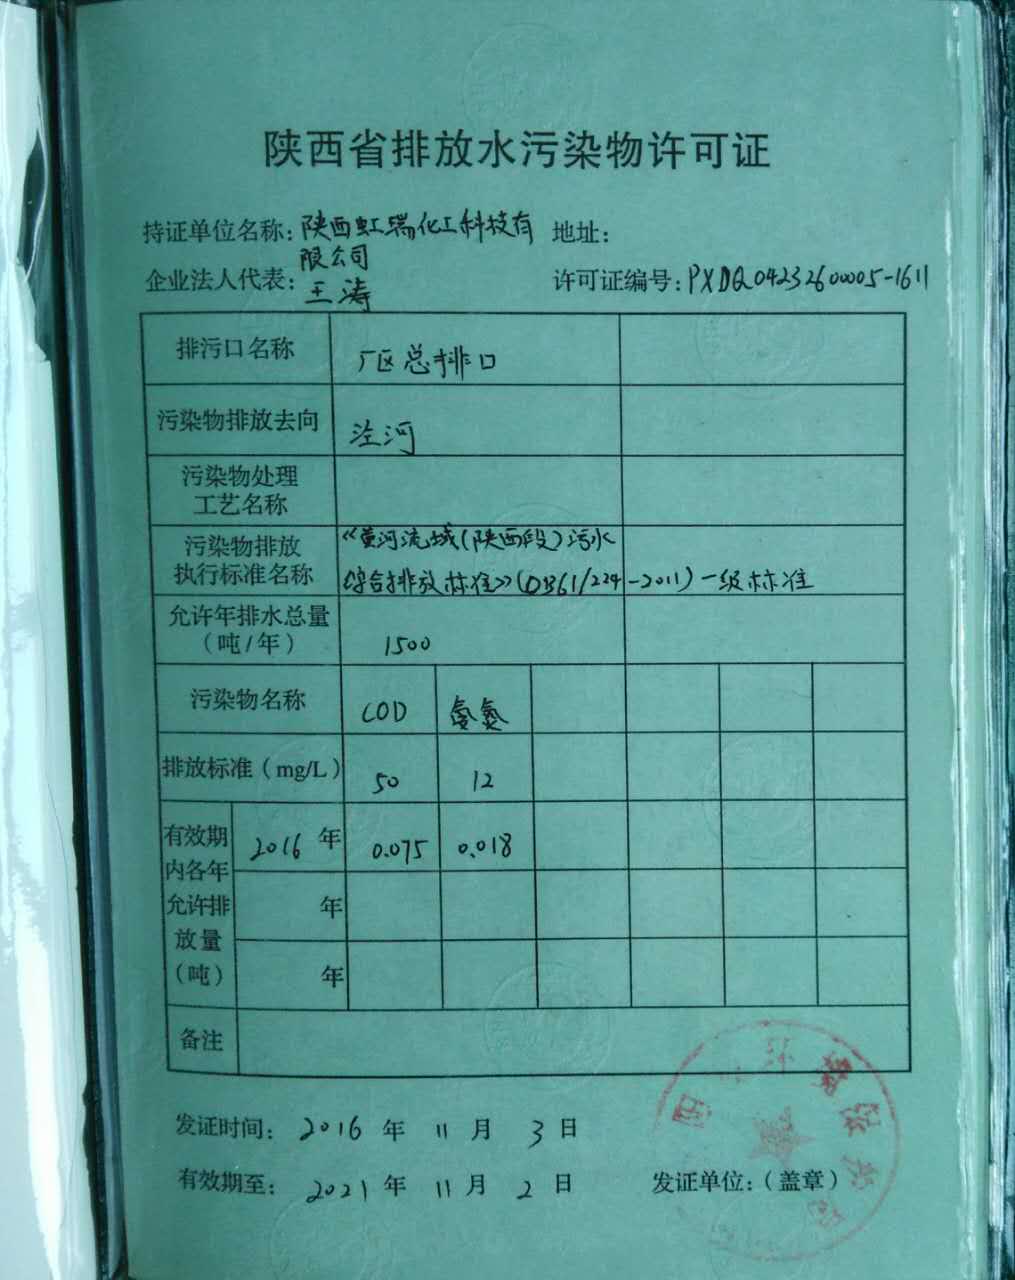 陕西省排放水污染物许可证
持证单位名称：陕西虹瑞化工科技有 地址：
限公司
企业法人代表：王涛 许可证编号：PXDQ0423260005-1611
排污口名称 厂区总排口
污染物排放去向 泾河
污染物处理
工艺名称
污染物排放 《黄河流域(陕西段)污水
执行标准名称 综合排放标准》(DB61/224-2011)一级标准
允许年排水总量 1500
（吨/年）
污染物名称 COD 氨氮
排放标准（mg/L） 50 12
有效期 2016 年 0.075 0.018
内各年
允许排 年
放量
（吨） 年
备注
发证时间：2016 年 11 月 3 日
有效期至：2021 年 11 月 2 日 发证单位：（盖章）